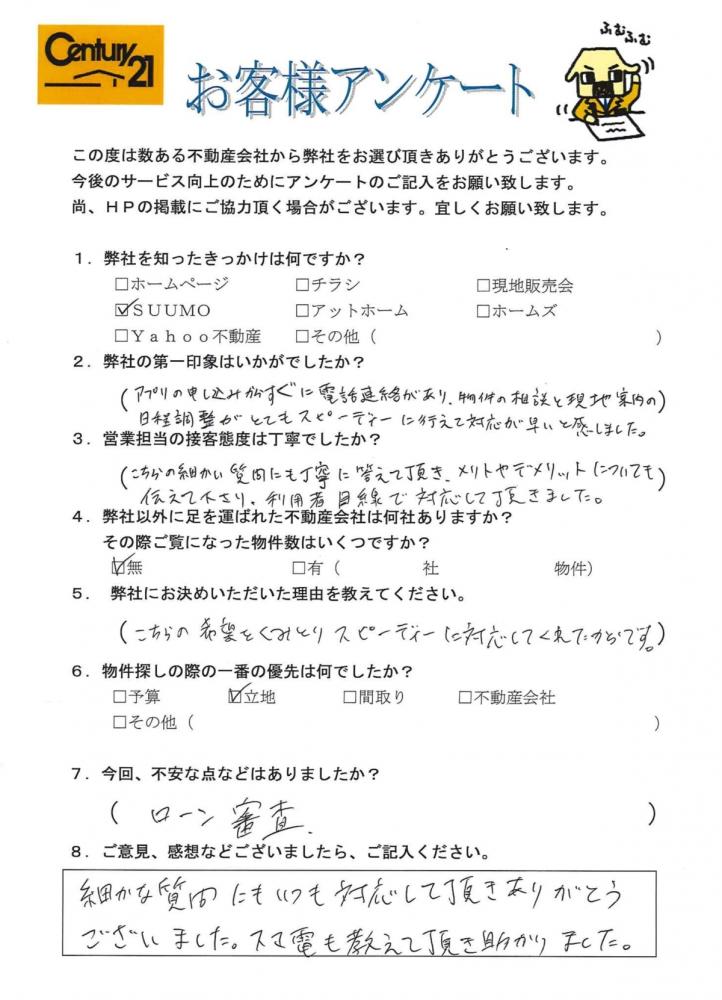 Century 21
お客様アンケート
ふむふむ
この度は数ある不動産会社から弊社をお選び頂きありがとうございます。
今後のサービス向上のためにアンケートのご記入をお願い致します。
尚、ＨＰの掲載にご協力頂く場合がございます。宜しくお願い致します。
１．弊社を知ったきっかけは何ですか？
□ホームページ □チラシ □現地販売会
☑ＳＵＵＭＯ □アットホーム □ホームズ
□Ｙａｈｏｏ不動産 □その他（ ）
２．弊社の第一印象はいかがでしたか？
（アプリの申し込みからすぐに電話連絡があり、物件の相談と現地案内の）
日程調整がとてもスピーディーに行えて対応が早いと感じました。
３．営業担当の接客態度は丁寧でしたか？
（こちらの細かい質問にも丁寧に答えて頂き、メリトやデメリットについても）
伝えて下さり、利用者目線で対応して頂きました。
４．弊社以外に足を運ばれた不動産会社は何社ありますか？
その際ご覧になった物件数はいくつですか？
☑無 □有（ 社 物件）
５． 弊社にお決めいただいた理由を教えてください。
（こちらの希望をくみとりスピーディーに対応してくれたからです。）
６．物件探しの際の一番の優先は何でしたか？
□予算 ☑立地 □間取り □不動産会社
□その他（ ）
７．今回、不安な点などはありましたか？
（ ローン審査． ）
８．ご意見、感想などございましたら、ご記入ください。
細かな質問にもいつも対応して頂きありがとう
ございました。スマ電も教えて頂き助かりました。